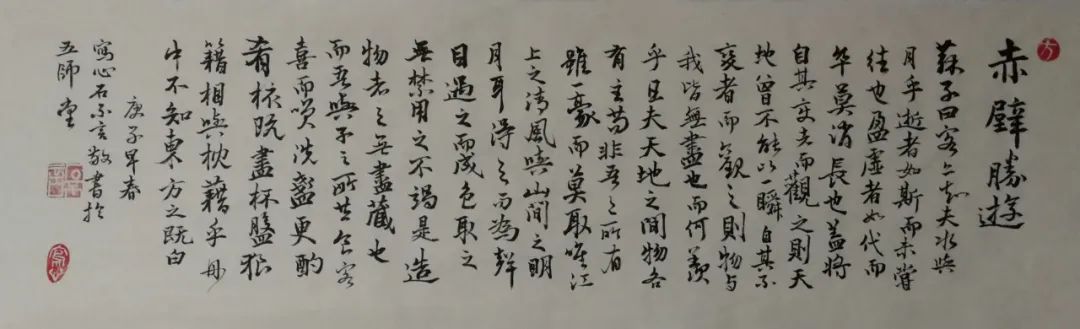 赤壁勝遊
蘇子曰客亦知夫水與
月乎逝者如斯而未嘗
往也盈虛者如代而
卒莫消長也蓋將
自其變者而觀之則天
地曾不能以一瞬自其不
變者而觀之則物與
我皆無盡也而何羨
乎且夫天地之間物各
有主苟非吾之所有
雖一豪而莫取唯江
上之清風與山間之明
月耳得之而為聲
目遇之而成色取之
無禁用之不竭是造
物者之無盡藏也
而吾與子之所共食客
喜而笑洗盞更酌
肴核既盡杯盤狼
籍相與枕藉乎舟
中不知東方之既白
庚子早春
寫心石不言敬書於
五師堂